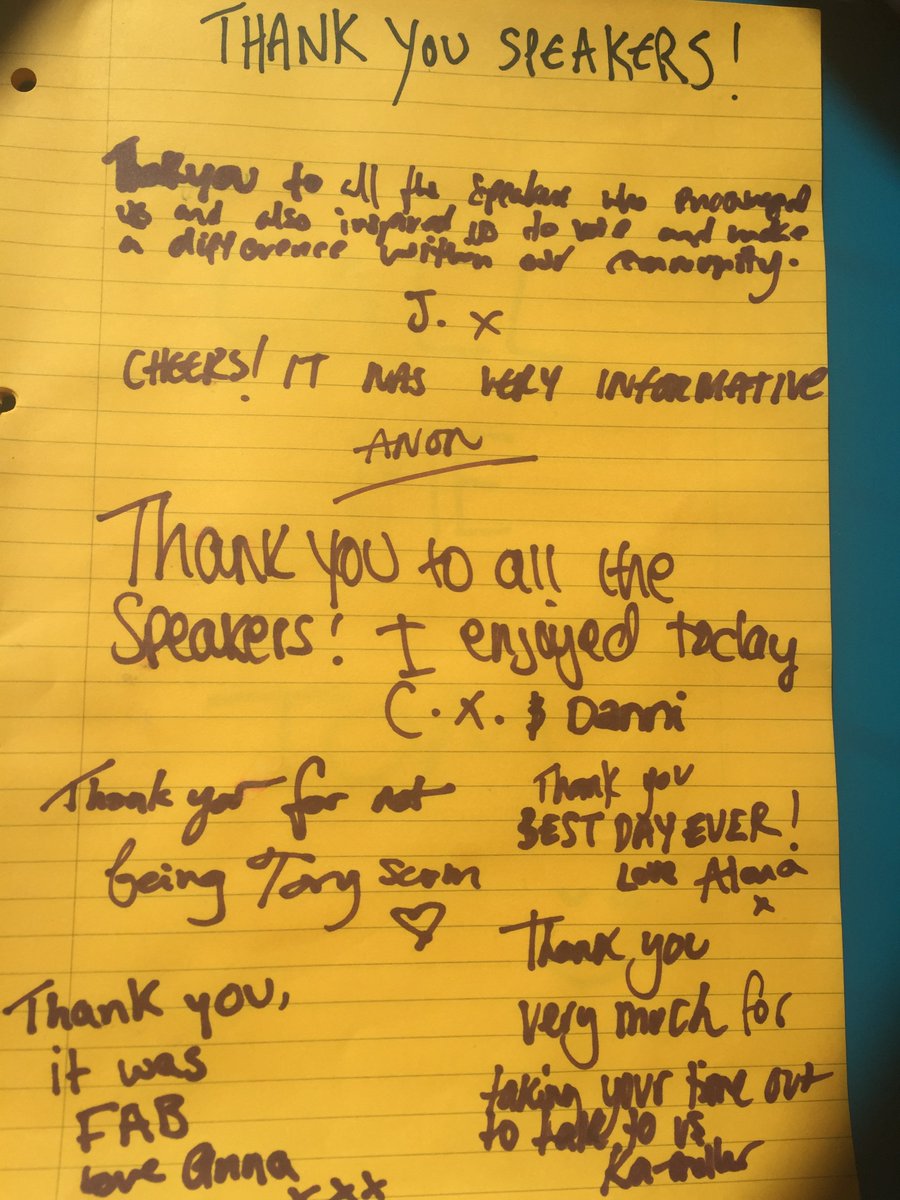 THANK YOU SPEAKERS!
Thank you to all the Speakers who encouraged
us and also inspired us to vote and make
a difference within our community.
J. x
CHEERS! IT WAS VERY INFORMATIVE
ANON
THANK YOU to all the
Speakers! I enjoyed today
C.X. & Danni
Thank you for not
being Tory scum
♡
Thank you
BEST DAY EVER!
Love Alana
x
Thank you,
it was
FAB
love Anna
xxx
Thank you
very much for
taking your time out
to talk to us